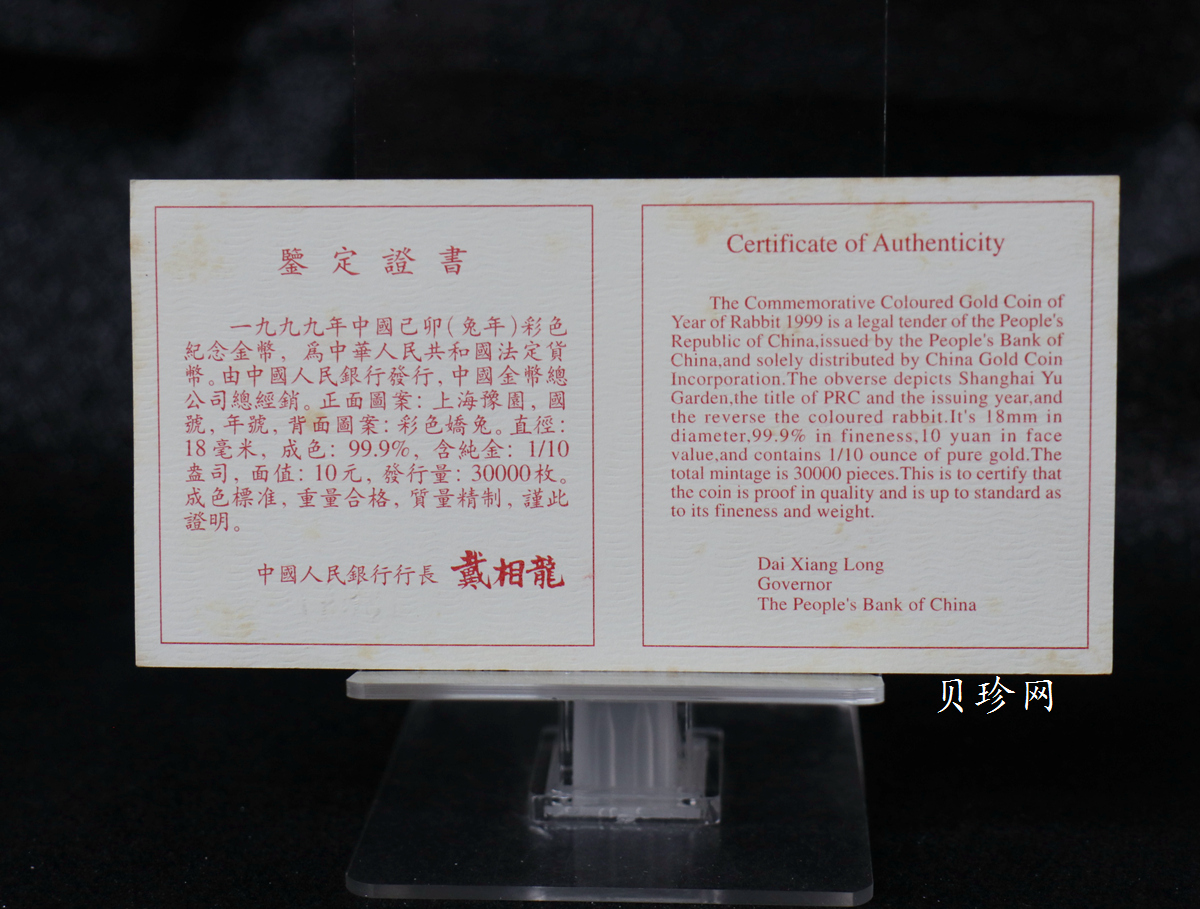 鑒定證書
一九九九年中國己卯(兔年)彩色
紀念金幣,爲中華人民共和國法定貨
幣。由中國人民銀行發行,中國金幣總
公司總經銷。正面圖案:上海豫園,國
號,年號,背面圖案:彩色嬌兔。直徑:
18毫米,成色:99.9%,含純金:1/10
盎司,面值:10元,發行量:30000枚。
成色標准,重量合格,質量精制,謹此
證明。
中國人民銀行行長 戴相龍
Certificate of Authenticity
The Commemorative Coloured Gold Coin of
Year of Rabbit 1999 is a legal tender of the People's
Republic of China,issued by the People's Bank of
China,and solely distributed by China Gold Coin
Incorporation.The obverse depicts Shanghai Yu
Garden,the title of PRC and the issuing year,and
the reverse the coloured rabbit.It's 18mm in
diameter,99.9% in fineness,10 yuan in face
value,and contains 1/10 ounce of pure gold.The
total mintage is 30000 pieces.This is to certify that
the coin is proof in quality and is up to standard as
to its fineness and weight.
Dai Xiang Long
Governor
The People's Bank of China
贝珍网